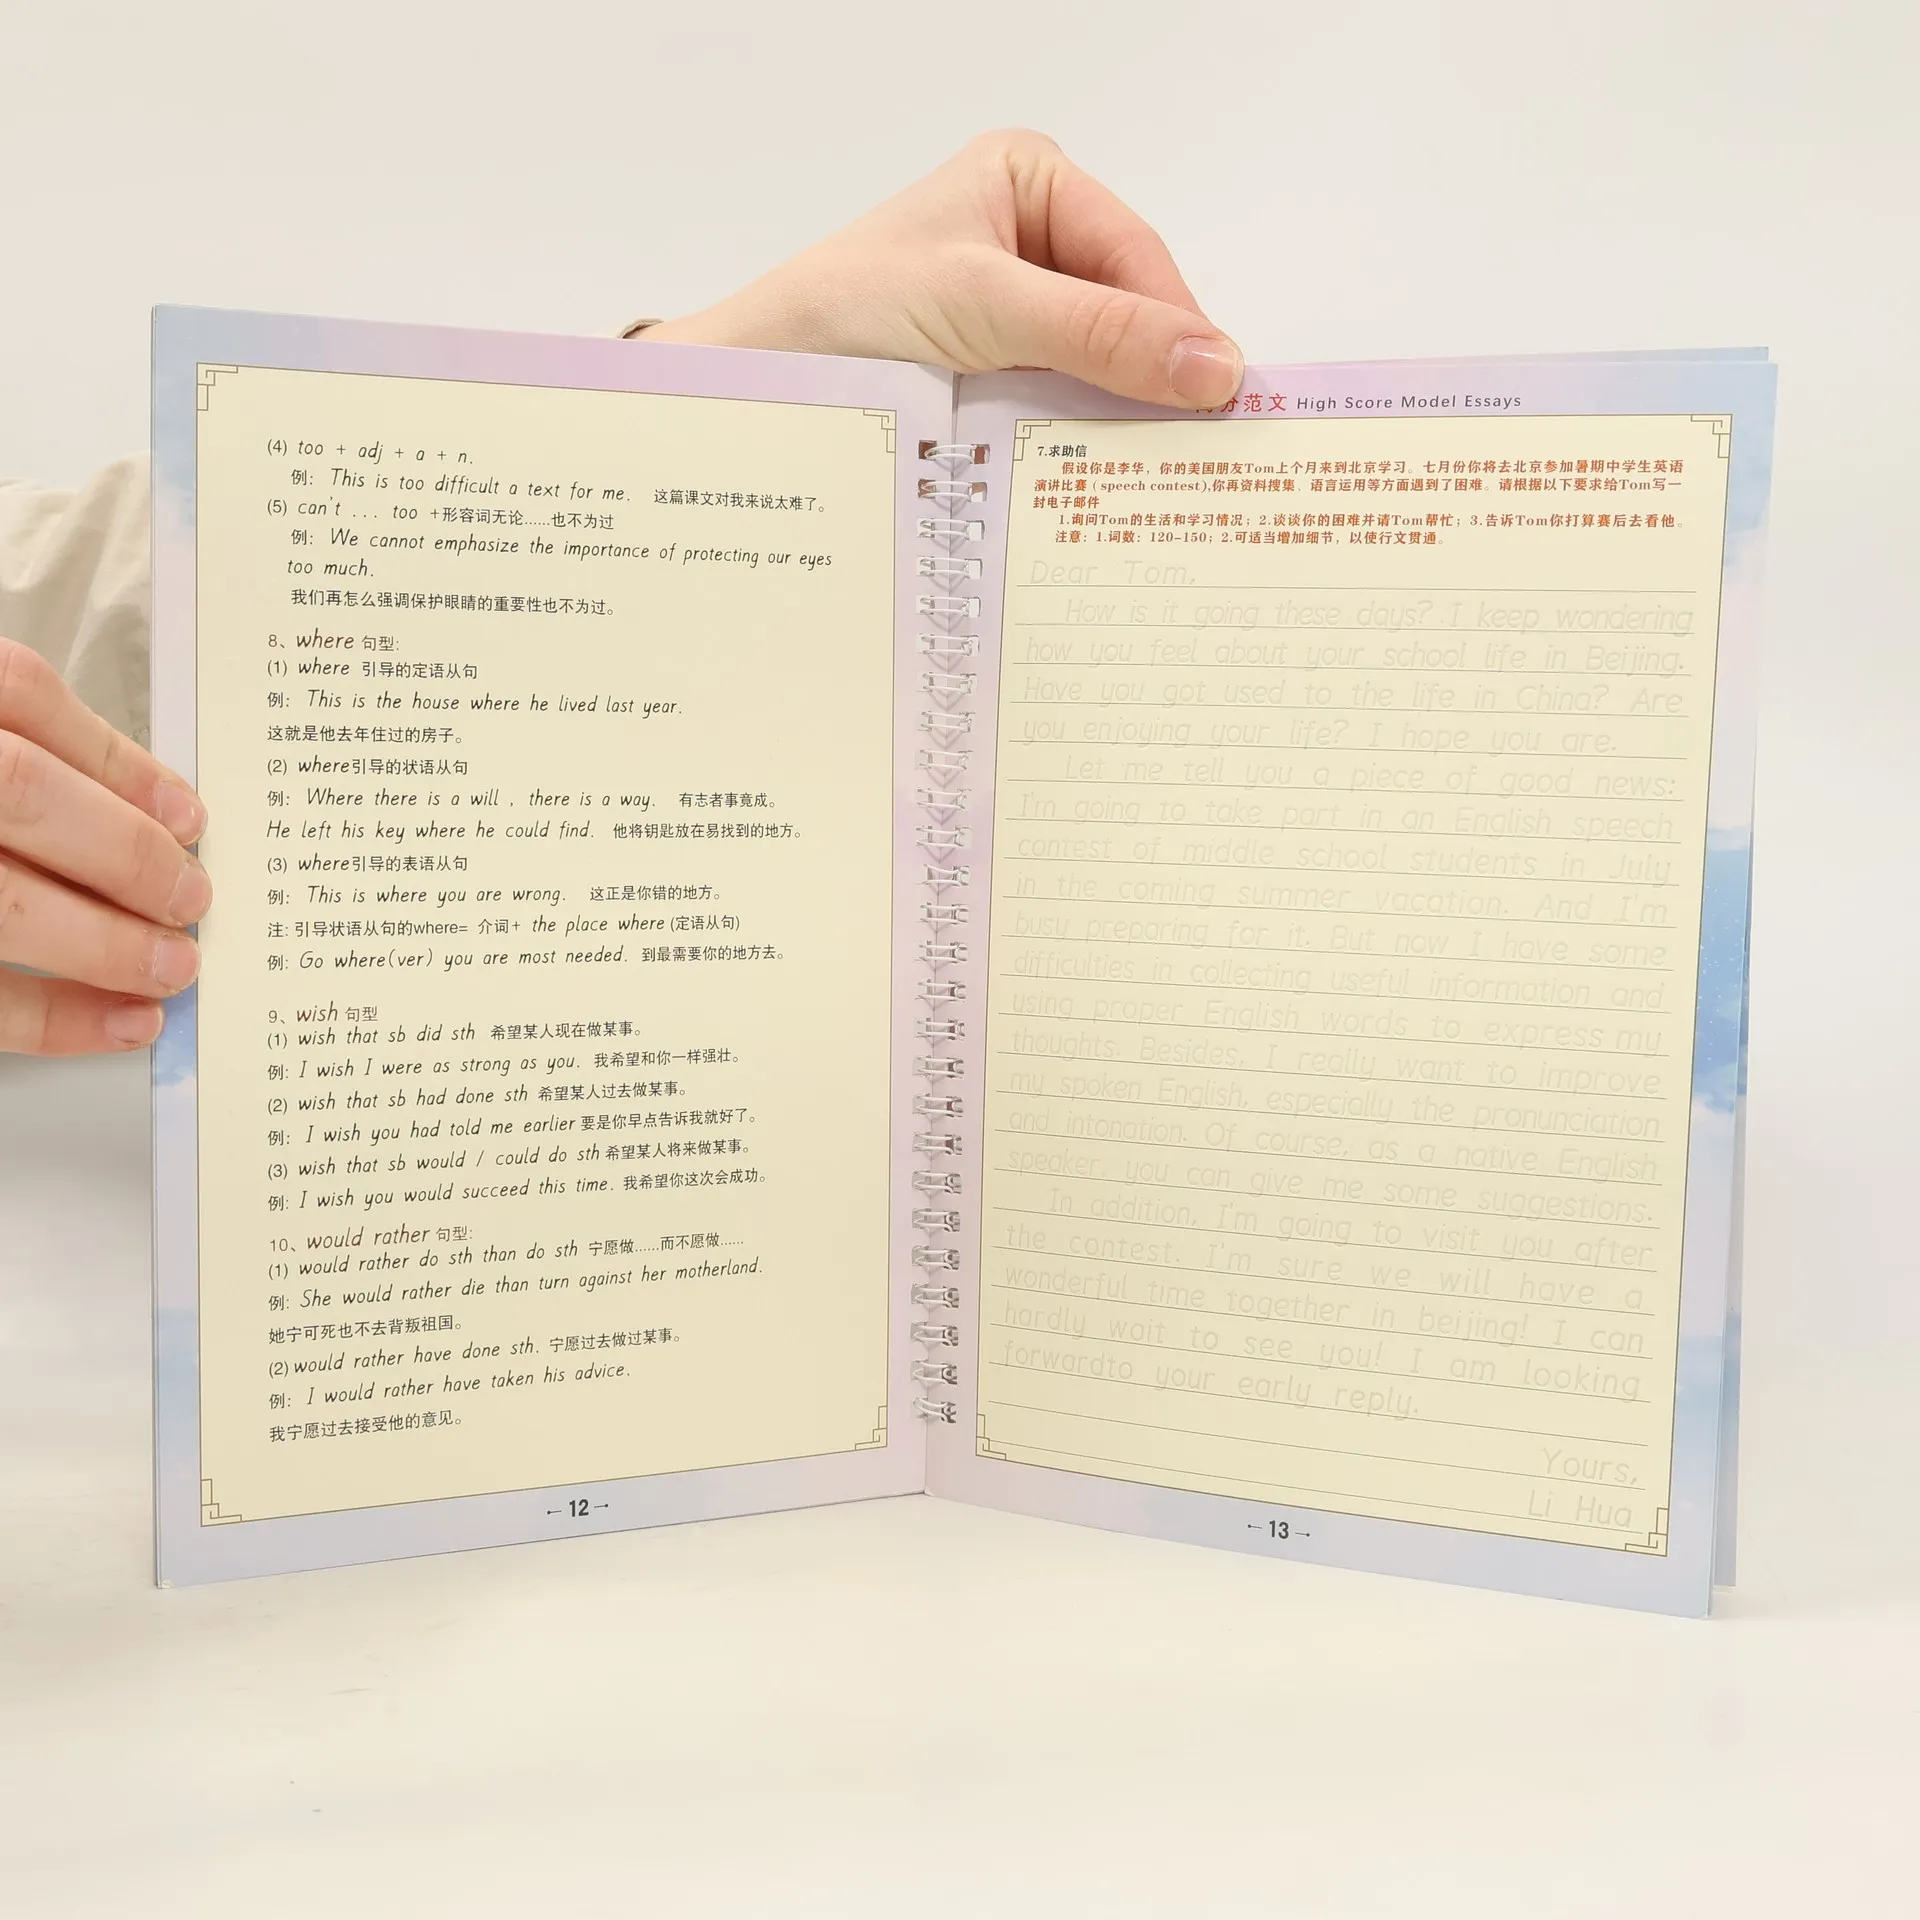 (4) too + adj + a + n.
例： This is too difficult a text for me. 这篇课文对我来说太难了。
(5) can't ... too +形容词无论……也不为过
例： We cannot emphasize the importance of protecting our eyes
too much.
我们再怎么强调保护眼睛的重要性也不为过。
8、where 句型:
(1) where 引导的定语从句
例： This is the house where he lived last year.
这就是他去年住过的房子。
(2) where引导的状语从句
例： Where there is a will , there is a way. 有志者事竟成。
He left his key where he could find. 他将钥匙放在易找到的地方。
(3) where引导的表语从句
例： This is where you are wrong. 这正是你错的地方。
注: 引导状语从句的where= 介词+ the place where (定语从句)
例: Go where(ver) you are most needed. 到最需要你的地方去。
9、wish 句型
(1) wish that sb did sth 希望某人现在做某事。
例: I wish I were as strong as you. 我希望和你一样强壮。
(2) wish that sb had done sth 希望某人过去做某事。
例: I wish you had told me earlier 要是你早点告诉我就好了。
(3) wish that sb would / could do sth 希望某人将来做某事。
例: I wish you would succeed this time. 我希望你这次会成功。
10、would rather 句型:
(1) would rather do sth than do sth 宁愿做……而不愿做……
例: She would rather die than turn against her motherland.
她宁可死也不去背叛祖国。
(2) would rather have done sth. 宁愿过去做过某事。
例: I would rather have taken his advice.
我宁愿过去接受他的意见。
12
分范文 High Score Model Essays
7.求助信
假设你是李华，你的美国朋友Tom上个月来到北京学习。七月份你将去北京参加暑期中学生英语
演讲比赛（speech contest),你再资料搜集、语言运用等方面遇到了困难。请根据以下要求给Tom写一
封电子邮件
1.询问Tom的生活和学习情况；2.谈谈你的困难并请Tom帮忙；3.告诉Tom你打算赛后去看他。
注意：1.词数：120-150；2.可适当增加细节，以使行文贯通。
Dear Tom,
How is it going these days? I keep wondering
how you feel about your school life in Beijing.
Have you got used to the life in China? Are
you enjoying your life? I hope you are.
Let me tell you a piece of good news:
I'm going to take part in an English speech
contest of middle school students in July
in the coming summer vacation. And I'm
busy preparing for it. But now I have some
difficulties in collecting useful information and
using proper English words to express my
thoughts. Besides, I really want to improve
my spoken English, especially the pronunciation
and intonation. Of course, as a native English
speaker, you can give me some suggestions.
In addition, I'm going to visit you after
the contest. I'm sure we will have a
wonderful time together in beijing! I can
hardly wait to see you! I am looking
forwardto your early reply.
Yours,
Li Hua
13